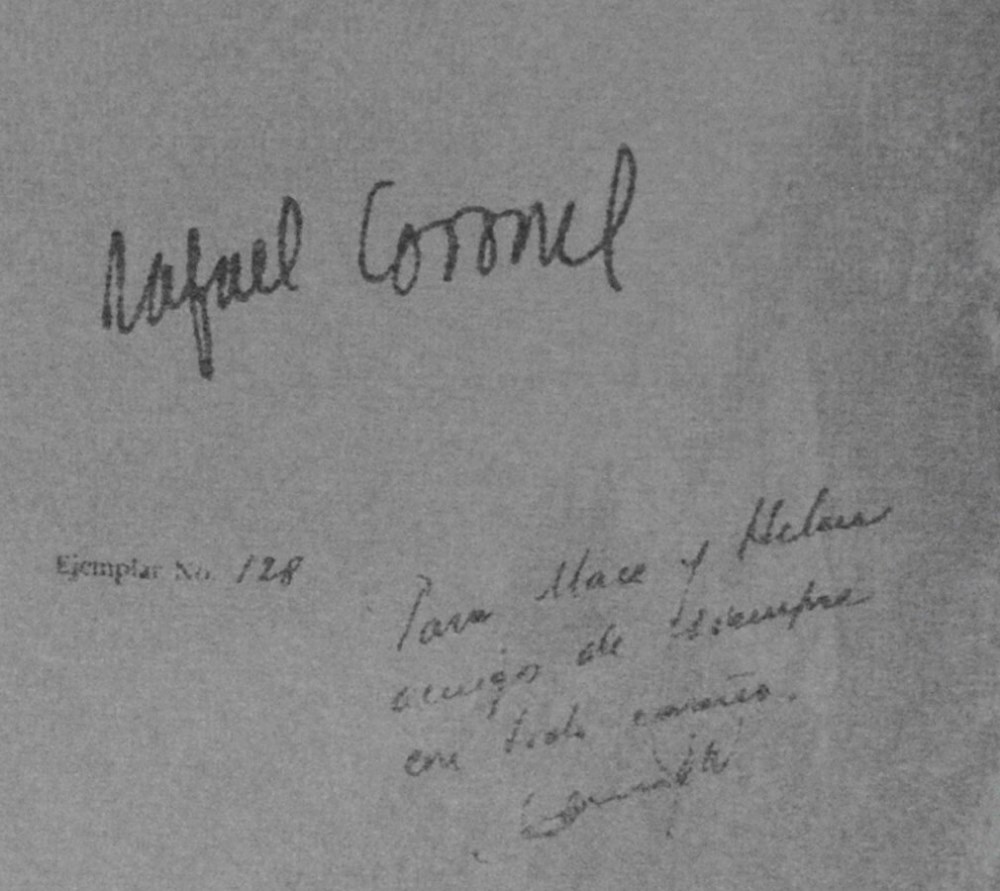 Rafael Coronel
Ejemplar No. 128
Para Mace y Helen
amigos de siempre
con todo cariño.